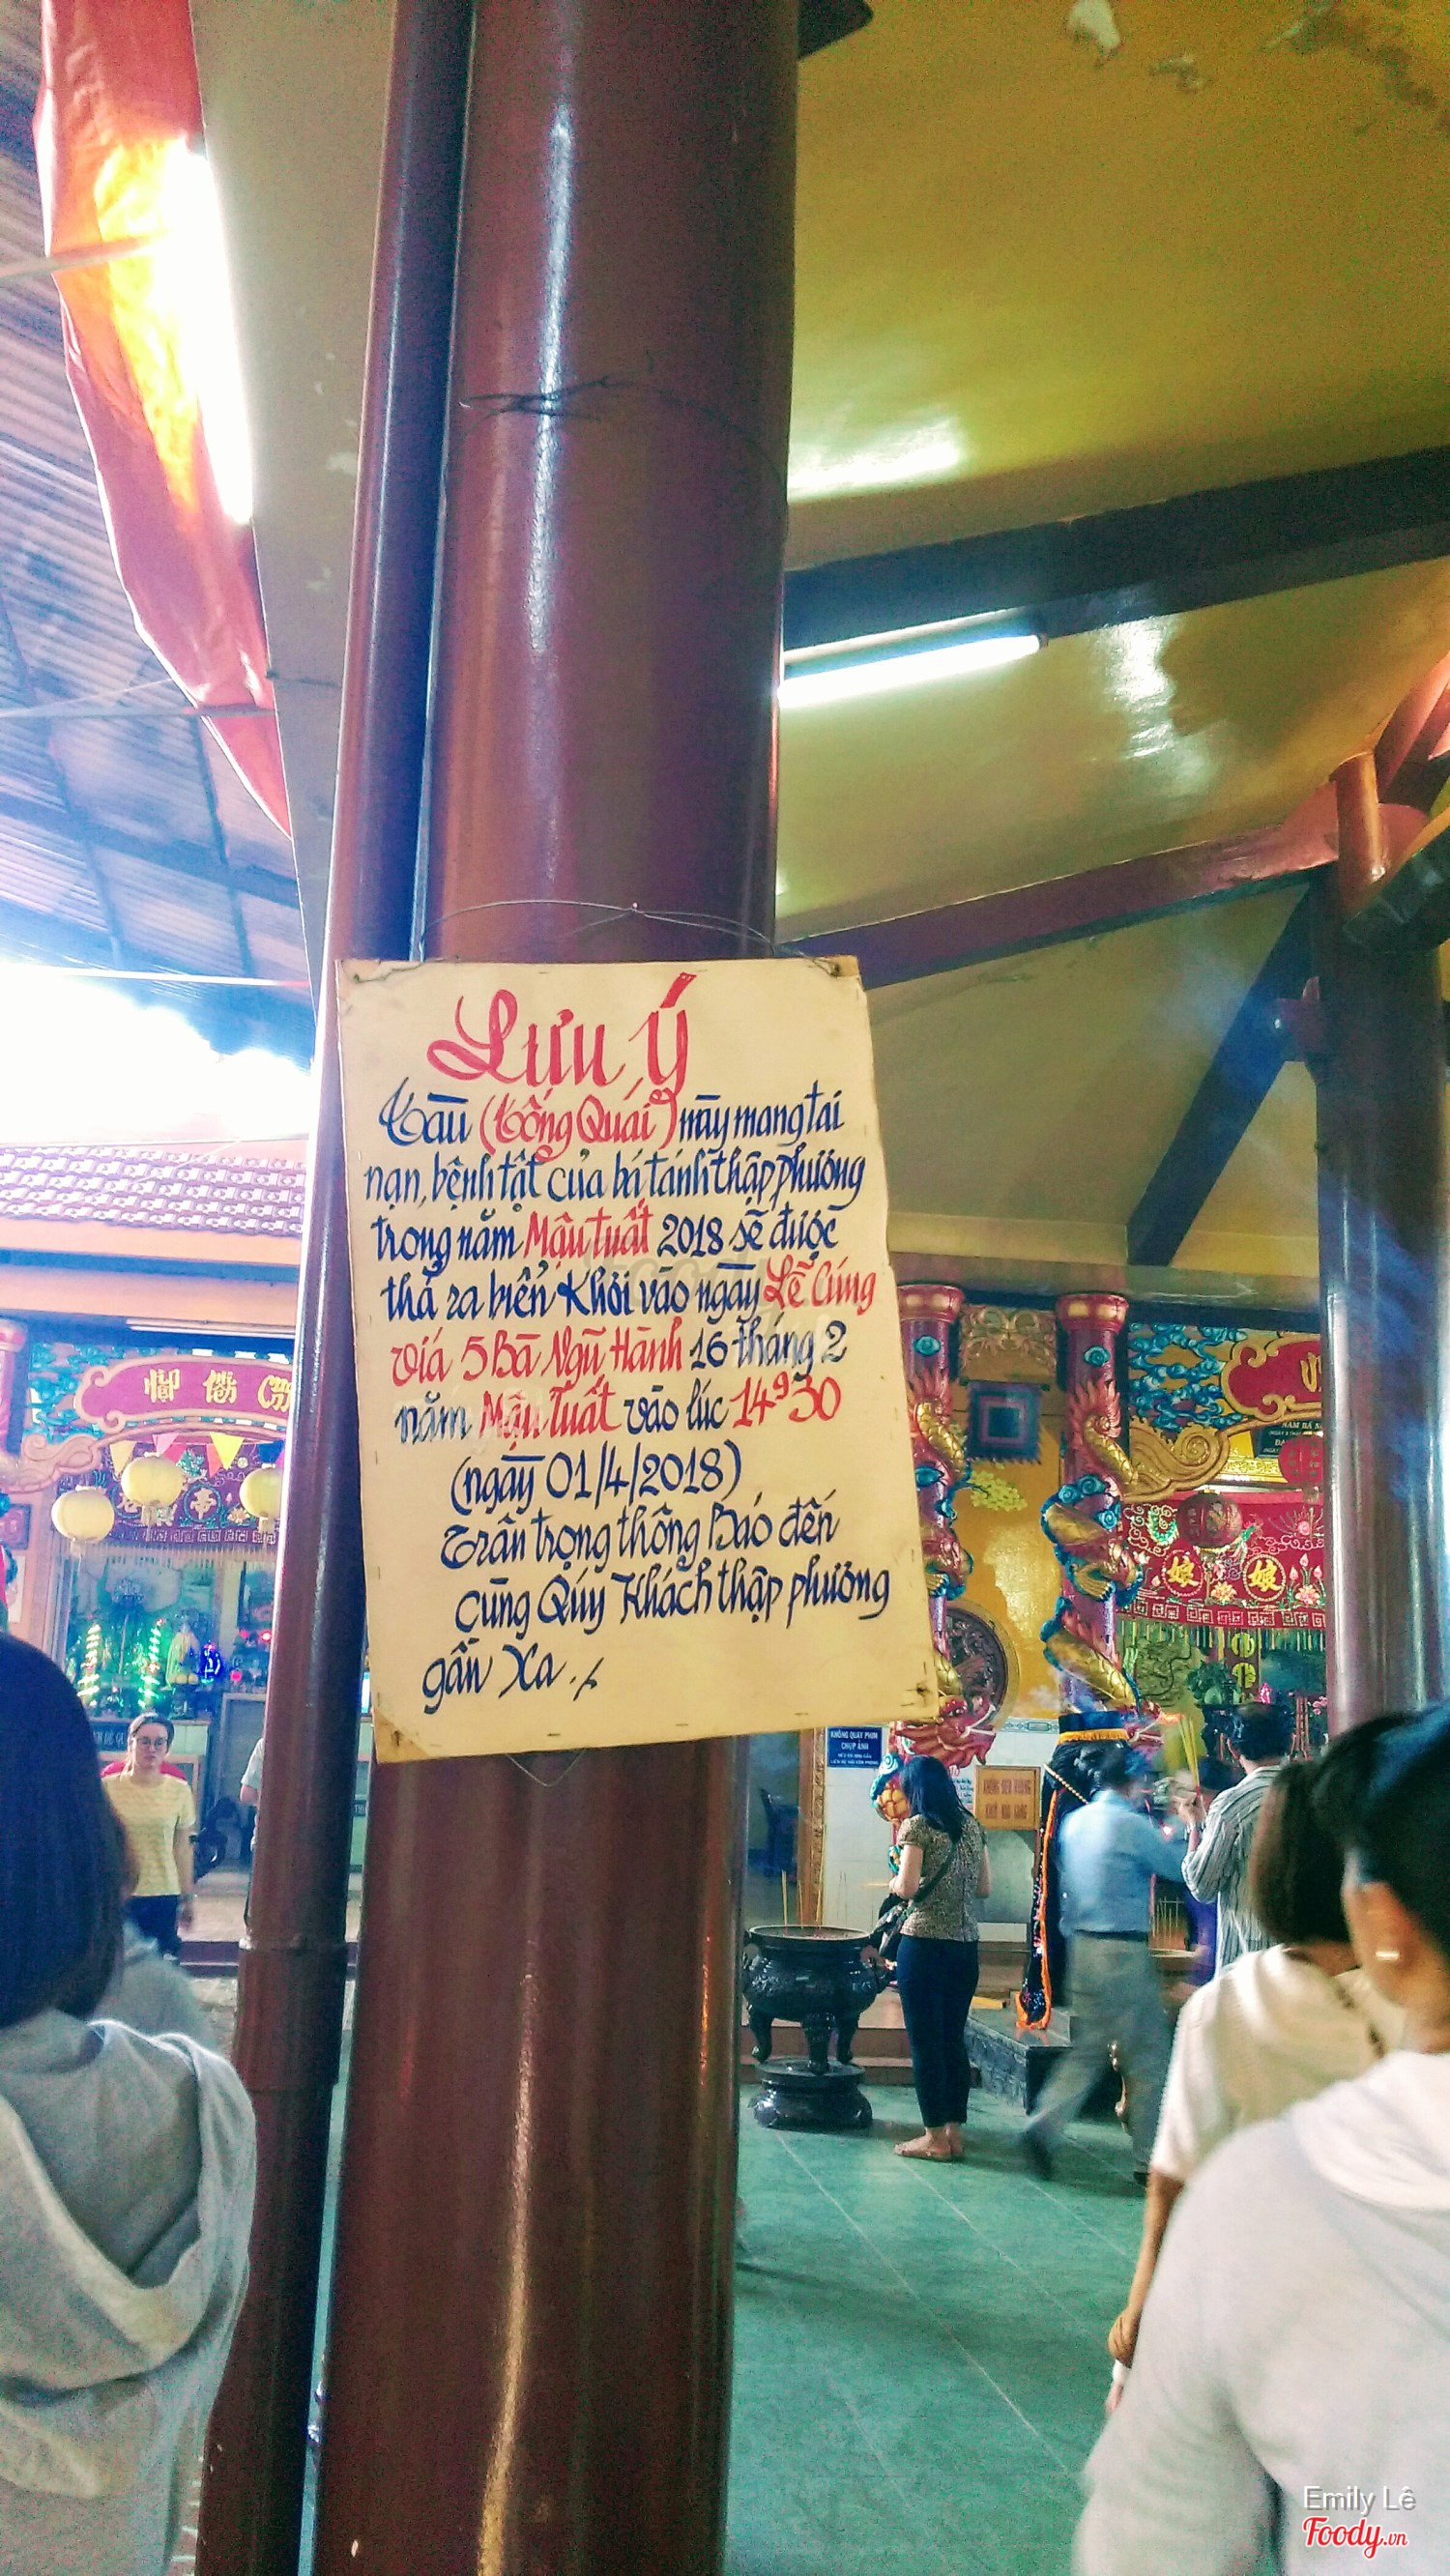 Lưu Ý
Tàu (Tống Quái) này mang tai
nạn, bệnh tật của bá tánh thập phương
trong năm Mậu tuất 2018 sẽ được
thả ra biển Khơi vào ngày Lễ Cúng
vía 5 Bà Ngũ Hành 16 tháng 2
năm Mậu Tuất vào lúc 14g30
(ngày 01/4/2018)
Trân trọng thông Báo đến
cùng Qúy Khách thập phương
gần Xa ./
KHÔNG QUAY PHIM
CHỤP ẢNH
娘 娘
Emily Lê
Foody.vn